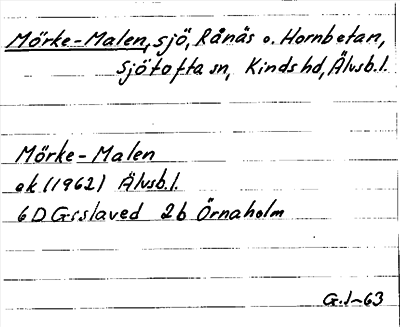 Mörke-Malen, sjö, Rånäs o. Hornbetan,
Sjötofta sn, Kinds hd, Älvsb.l.
Mörke-Malen
ek (1962) Älvsb.l.
6D Gislaved 2b Örnaholm
G.l-63